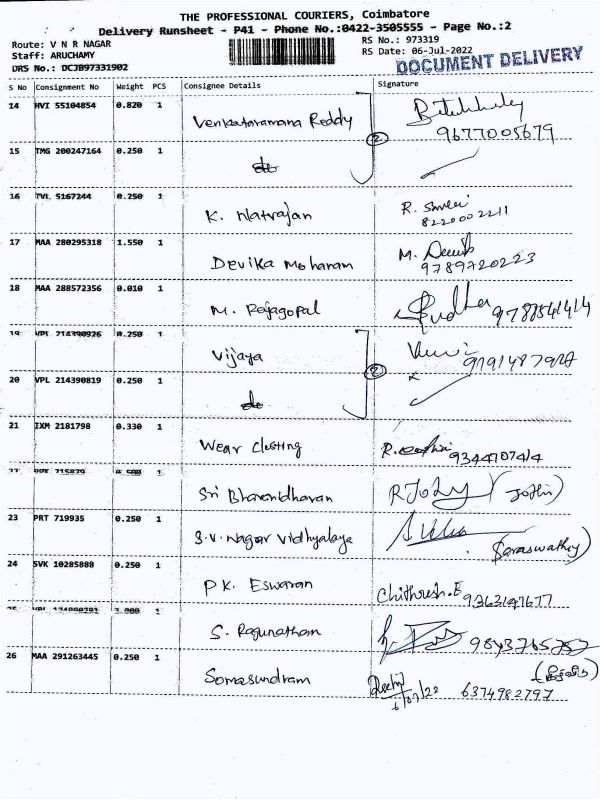 THE PROFESSIONAL COURIERS, Coimbatore
Delivery Runsheet - P41 - Phone No.:0422-3505555 - Page No.:2
Route: V N R NAGAR RS No.: 973319
Staff: ARUCHAMY RS Date: 06-Jul-2022
DRS No.: DCJB97331902 DOCUMENT DELIVERY
S No Consignment No Weight PCS Consignee Details Signature
14 MVI 55104854 0.820 1
Venkataramana Reddy 9677005679
2
15 TMG 200247164 0.250 1
do
16 TVL 5167244 0.250 1
K. Natrajan R.
8220002211
17 MAA 280295318 1.550 1
Devika Moharam M.
9789720223
18 MAA 288572356 0.010 1
M. Rajagopal Sudha
19 VPL 214390926 0.250 1
Vijaya
2
20 VPL 214390819 0.250 1
do
21 IXM 2181798 0.330 1
Wear Clothing R. 9344107414
0.500 1
Sri Bharanidharan R Johy (Jothi)
23 PRT 719935 0.250 1
S.V. Nagar Vidhyalaya (Saraswathy)
24 SVK 10285888 0.250 1
P.K. Eswaran Chithresh.E 9363147677
1
S. Ragunatham
26 MAA 291263445 0.250 1
Somasundram 6374982797
6/07/22